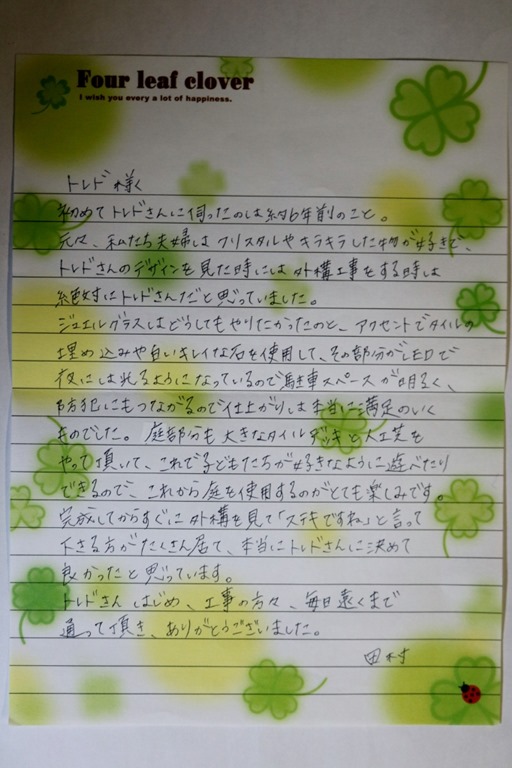 Four leaf clover
I wish you every a lot of happiness.
トレド様く
初めてトレドさんに伺ったのは約6年前のこと。
元々、私たち夫婦はクリスタルやキラキラした物が好きで、
トレドさんのデザインを見た時には外構工事をする時は
絶対にトレドさんだと思っていました。
ジュエルグラスはどうしてもやりたかったのと、アクセントでタイルの
埋め込みや白いキレイな石を使用して、その部分がLEDで
夜には光るようになっているので駐車スペースが明るく、
防犯にもつながるので仕上がりは本当に満足のいく
ものでした。庭部分も大きなタイルデッキと人工芝を
やって頂いて、これで子どもたちが好きなように遊べたり
できるので、これから庭を使用するのがとても楽しみです。
完成してからすぐに外構を見て「ステキですね」と言って
下さる方がたくさん居て、本当にトレドさんに決めて
良かったと思っています。
トレドさんはじめ、工事の方々、毎日遠くまで
通って頂き、ありがとうございました。
田村